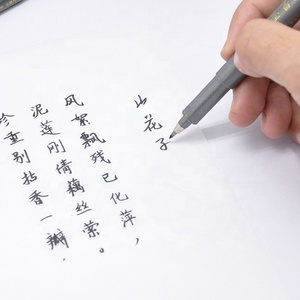 山花子
风絮飘残已化萍，
泥莲刚倩藕丝萦。
珍重别拈香一瓣.